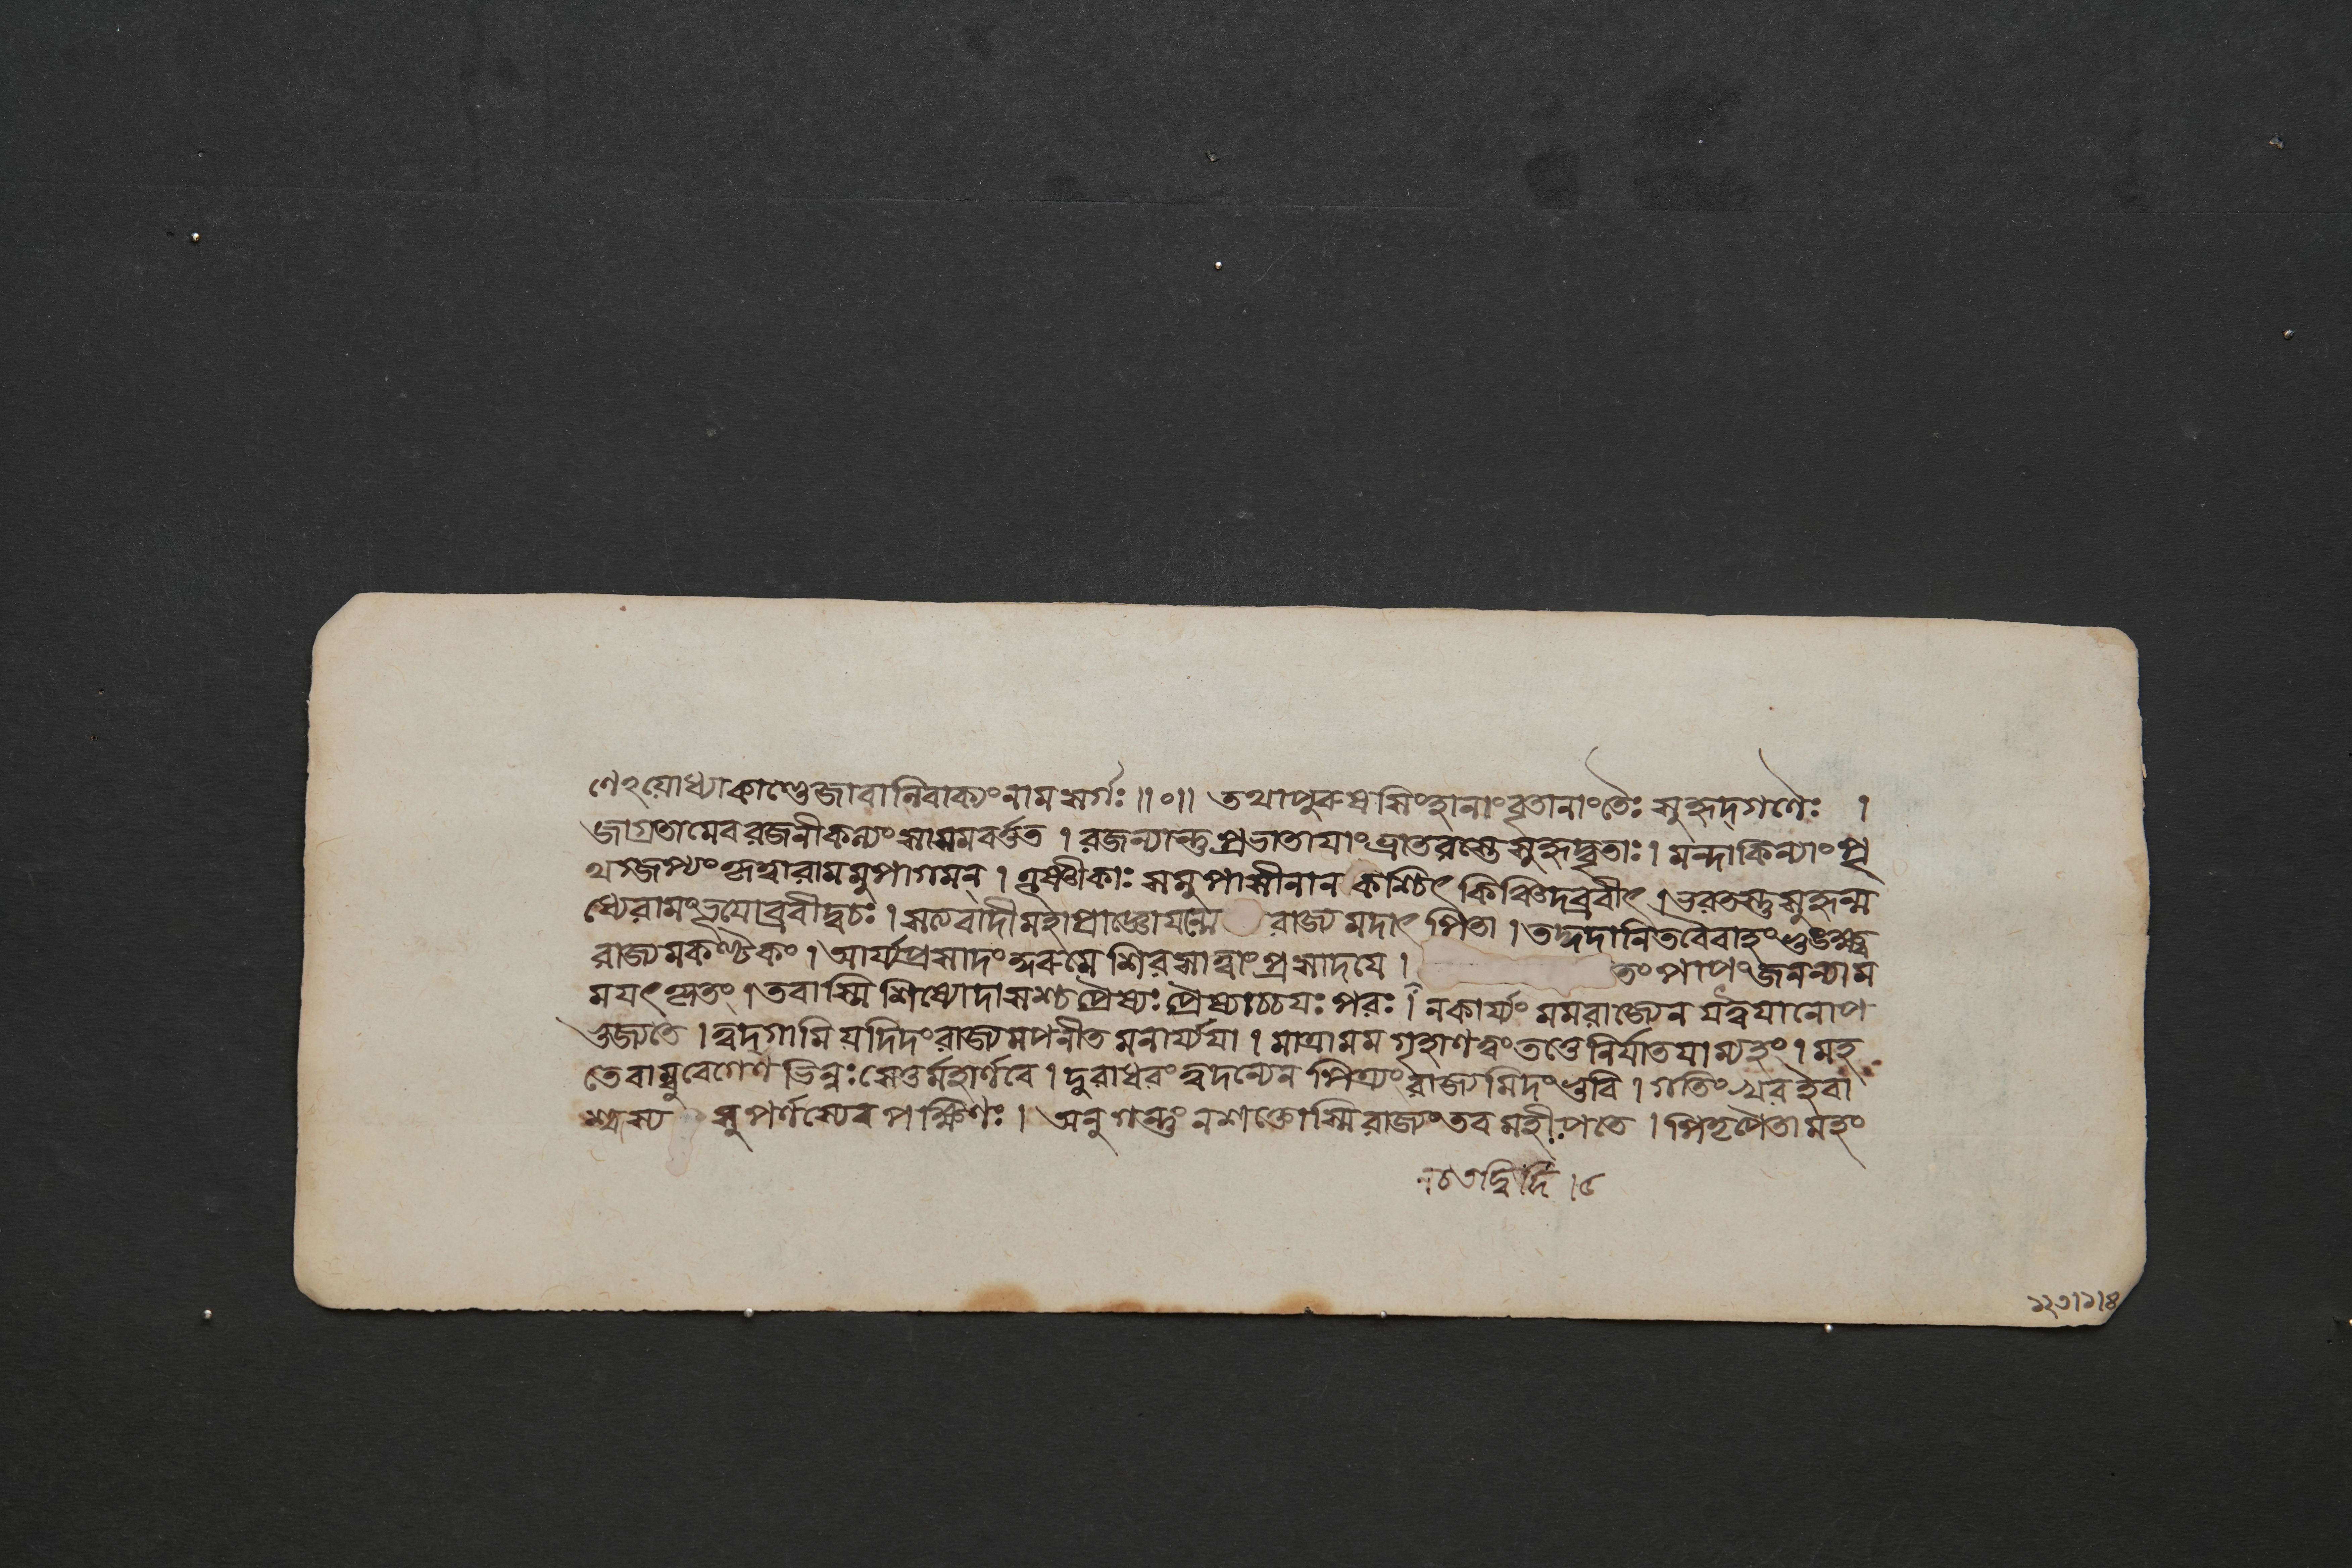 ণেঽয়োধ্যাকাণ্ডেজাবানিবাক্যংনামসর্গঃ॥০॥ তথাপুরুষসিংহানাংবৃতানাংতৈঃ সুহৃদ্গণৈঃ ।
জাগ্রতামেবরজনীকল্যংসাসমবর্ত্তত । রজন্যান্তুপ্রভাতাযাংভ্রাতরস্তেসুহৃদ্বৃতাঃ। মন্দাকিন্যাং
রামমুপাগমন্ । সমুপাসীনান কশ্চিৎ কিঞ্চিদব্রবীৎ ।ভরতস্তুসুহৃন্ম
ধ্যেরামংব্রবীদ্বচঃ। সত্যবাদীমহাপ্রাজ্ঞোযন্মে রাজ্যমদাৎ পিতা । তদ্দদানিতবৈবাহংভুঙ্ক্ষ্ব
রাজ্যমকণ্টকং। আর্য্যপ্রসাদংকুরুমে শিরসাত্বাংপ্রসাদযে । তং পাপংজনন্যাম
মযৎকৃতং। তবাস্মি শিষ্যোদাসশ্চপ্রৈষ্যঃ প্রৈষ্যাচ্চযঃ পরঃ। নকার্য্যং মমরাজ্যেন যত্ত্বযানোপ
ভুজ্যতে । ত্বদ্গামি যদিদংরাজ্যমপনীতমনার্য্যযা । মাত্রামম গৃহাণত্বংতত্তেনির্যাতযাম্যহং। মহ
তেবাম্বুবেগেণ ভিন্নঃ সেতুর্মহার্ণবে । দুরাধরংত্বদন্যেন পিত্র্যংরাজ্যমিদংভুবি । গতিংখরইবা
শ্বস্য সুপর্ণস্যেবপক্ষিণঃ। অনুগন্তুংনশক্তোস্মিরাজ্যংতবমহীপতে । পিতৃপৈতামহং
১২৩।১।৪